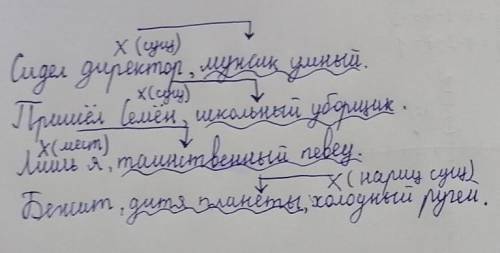 х (сущ)
Сидел директор, мужик умный.
х (сущ)
Пришёл Семён, школьный уборщик.
х (мест)
Лишь я, таинственный певец.
х (нариц сущ)
Бежит, дитя планеты, холодный ручей.